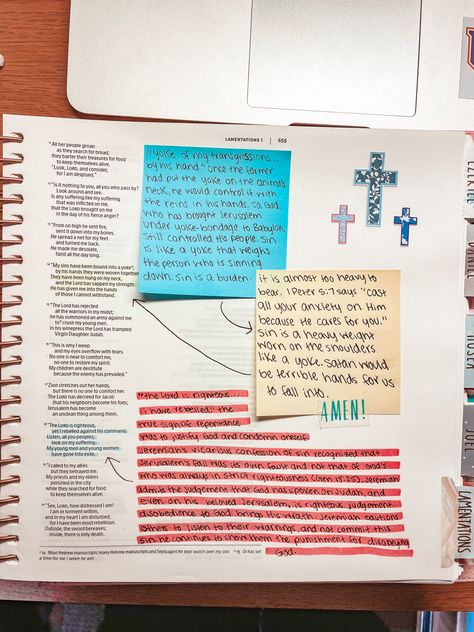 LAMENTATIONS 1 659
11 All her people groan
as they search for bread;
they barter their treasures for food
to keep themselves alive.
"Look, LORD, and consider,
for I am despised."
12 "Is it nothing to you, all you who pass by?
Look around and see.
Is any suffering like my suffering
that was inflicted on me,
that the LORD brought on me
in the day of his fierce anger?
13 "From on high he sent fire,
sent it down into my bones.
He spread a net for my feet
and turned me back.
He made me desolate,
faint all the day long.
14 "My sins have been bound into a yoke;
by his hands they were woven together.
They have been hung on my neck,
and the LORD has sapped my strength.
He has given me into the hands
of those I cannot withstand.
15 "The Lord has rejected
all the warriors in my midst;
he has summoned an army against me
to crush my young men.
In his winepress the Lord has trampled
Virgin Daughter Judah.
16 "This is why I weep
and my eyes overflow with tears.
No one is near to comfort me,
no one to restore my spirit.
My children are destitute
because the enemy has prevailed."
17 Zion stretches out her hands,
but there is no one to comfort her.
The LORD has decreed for Jacob
that his neighbors become his foes;
Jerusalem has become
an unclean thing among them.
18 "The LORD is righteous,
yet I rebelled against his command.
Listen, all you peoples;
look on my suffering.
My young men and young women
have gone into exile.
19 "I called to my allies
but they betrayed me.
My priests and my elders
perished in the city
while they searched for food
to keep themselves alive.
20 "See, LORD, how distressed I am!
I am in torment within,
and in my heart I am disturbed,
for I have been most rebellious.
Outside, the sword bereaves;
inside, there is only death.
"yoke of my transgressions...
by his hand." once the farmer
had put the yoke on the animal's
neck, he would control it with
the reins in his hands. so, God
who has brought Jerusalem
under yoke-bondage to Babylon,
still controlled His people. sin
is like a yoke that weighs
the person who is sinning
down. sin is a burden.
it is almost too heavy to
bear. 1 Peter 5:7 says "cast
all your anxiety on Him
because He cares for you."
sin is a heavy weight
worn on the shoulders
like a yoke. Satan would
be terrible hands for us
to fall into.
AMEN!
"the Lord is righteous...
i have rebelled," the
true sign of repentance
was to justify God and condemn oneself.
Jeremiah's vicarious confession of sin recognized that
Jerusalem's fall was its own fault and not that of God's
who was always in strict righteousness (Gen 18:25). Jeremiah
admits the judgement that God has spoken on Judah, and
even on his beloved Jerusalem, is righteous judgement.
disobedience to God brings his wrath. Jeremiah cautions
others to listen to their warnings, and not commit this
sin. he continues to show them the punishment for disobeying
God.
LAMENTATIONS